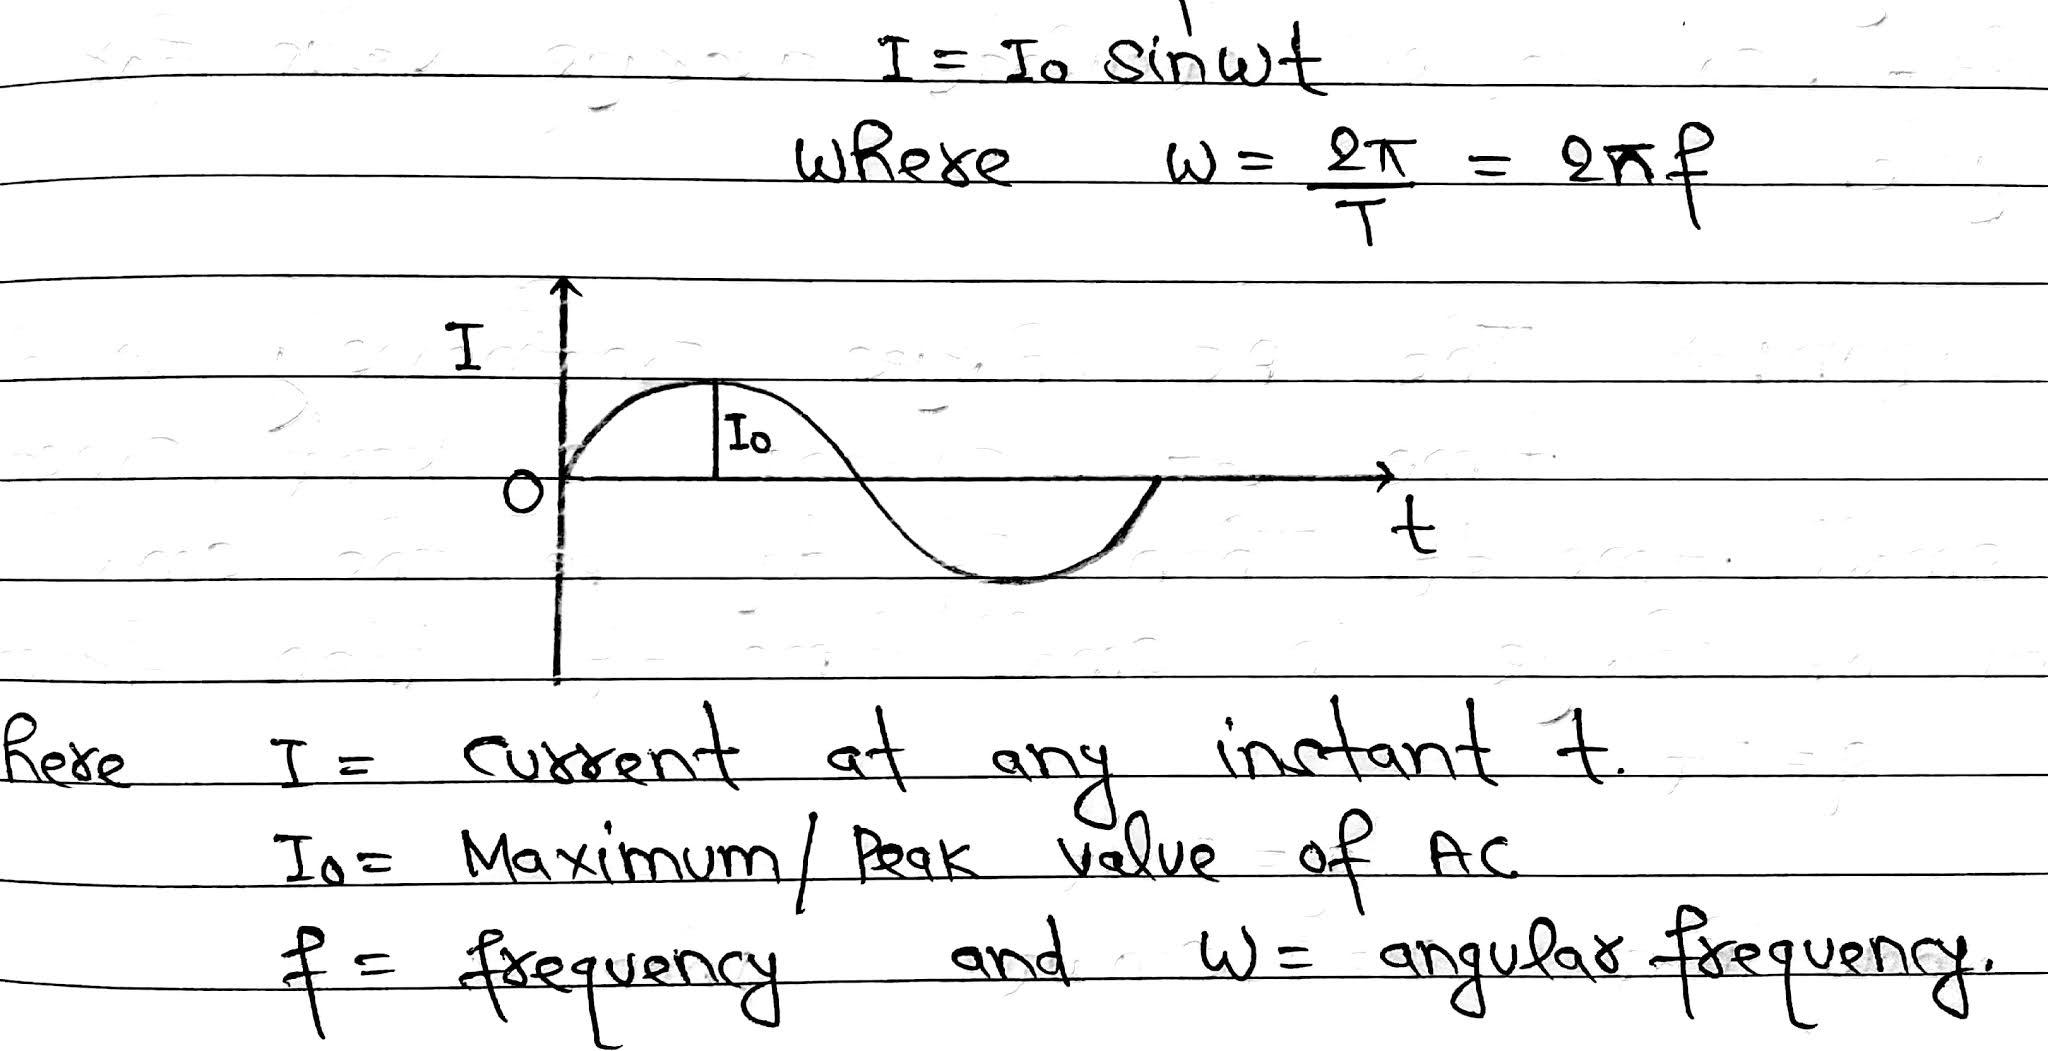 I = I₀ sinωt
where ω = 2π/T = 2πf
I
I₀
O
t
here I = current at any instant t.
I₀ = Maximum/Peak value of AC
f = frequency and ω = angular frequency.